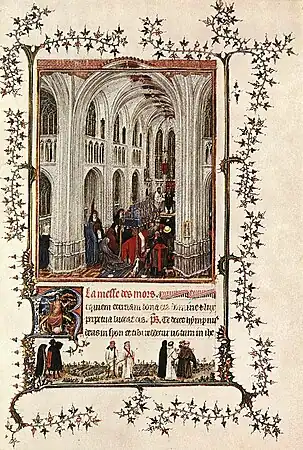 La messe des mors.
Requiem eternam dona eis domine et lux
perpetua luceat eis. Ps. Te decet hympnus
deus in syon et tibi reddetur votum in ihe